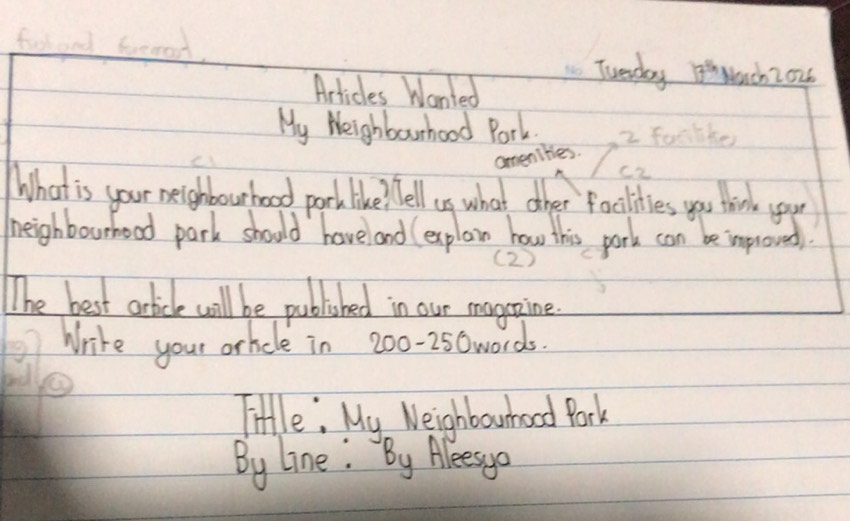 Tuesday 17th March 2026
Articles Wanted
My Neighbourhood Park.
2 facilities
amenities.
C1
C2
What is your neighbourhood park like? (Tell us what other facilities you think your
neighbourhood park should have) and (explain how this park can be improved).
(2)
The best article will be published in our magazine.
Write your article in 200-250 words.
Tittle : My Neighbourhood Park
By Line : By Aleesya